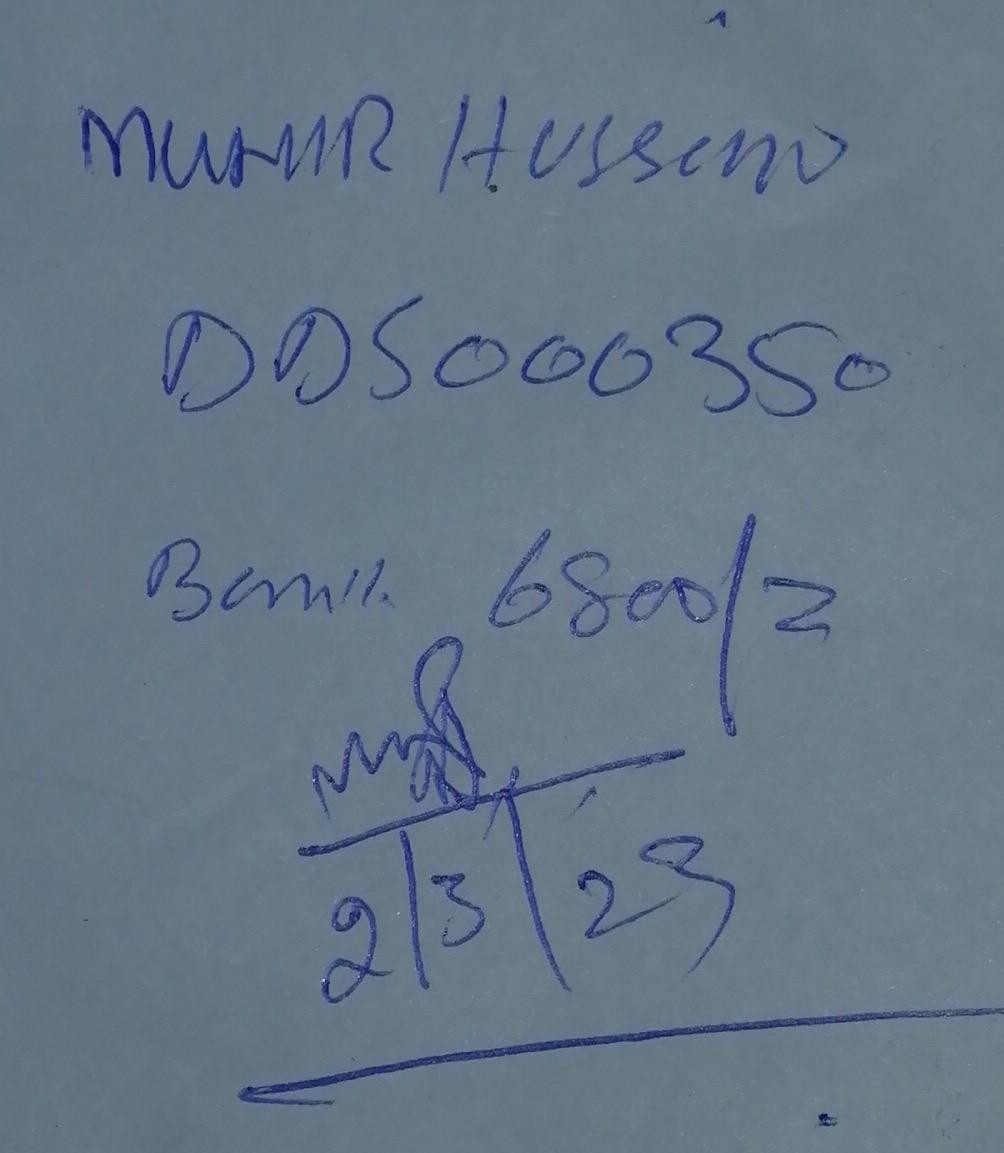 MUNIR Hussain
DDS000350
Bank 6800/=
2/3/23